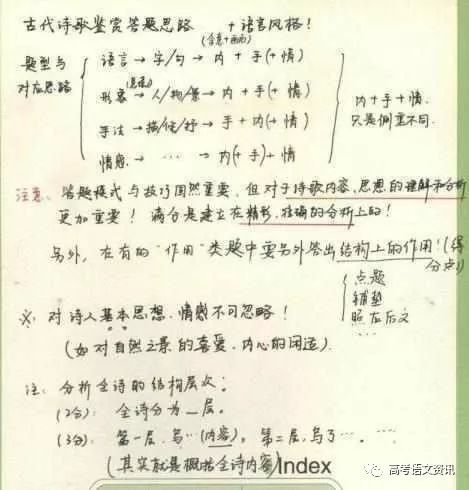 古代诗歌鉴赏答题思路 + 语言风格!
(含意+画面)
题型与
对应思路
语言 → 字/句 → 内 + 手(+情)
形象 → 人/物/景 → 内 + 手(+情)
手法 → 描/修/抒 → 手 + 内(+情)
情感 → … → 内(+手)+情
内+手+情.
只是侧重不同.
注意: 答题模式与技巧固然重要, 但对于诗歌内容、思想的理解和分析
更加重要! 满分是建立在精彩、准确的分析上的!
另外, 在有的“作用”类题中要另外答出结构上的作用!(得
分点)
点题
铺垫
照应后文
…
※: 对诗人基本思想、情感不可忽略!
(如对自然之景的喜爱、内心的闲适).
注: 分析全诗的结构层次:
(2分): 全诗分为_层.
(3分): 第一层, 写…(内容). 第二层, 写了… ….
(其实就是概括全诗内容)
Index
高考语文资讯